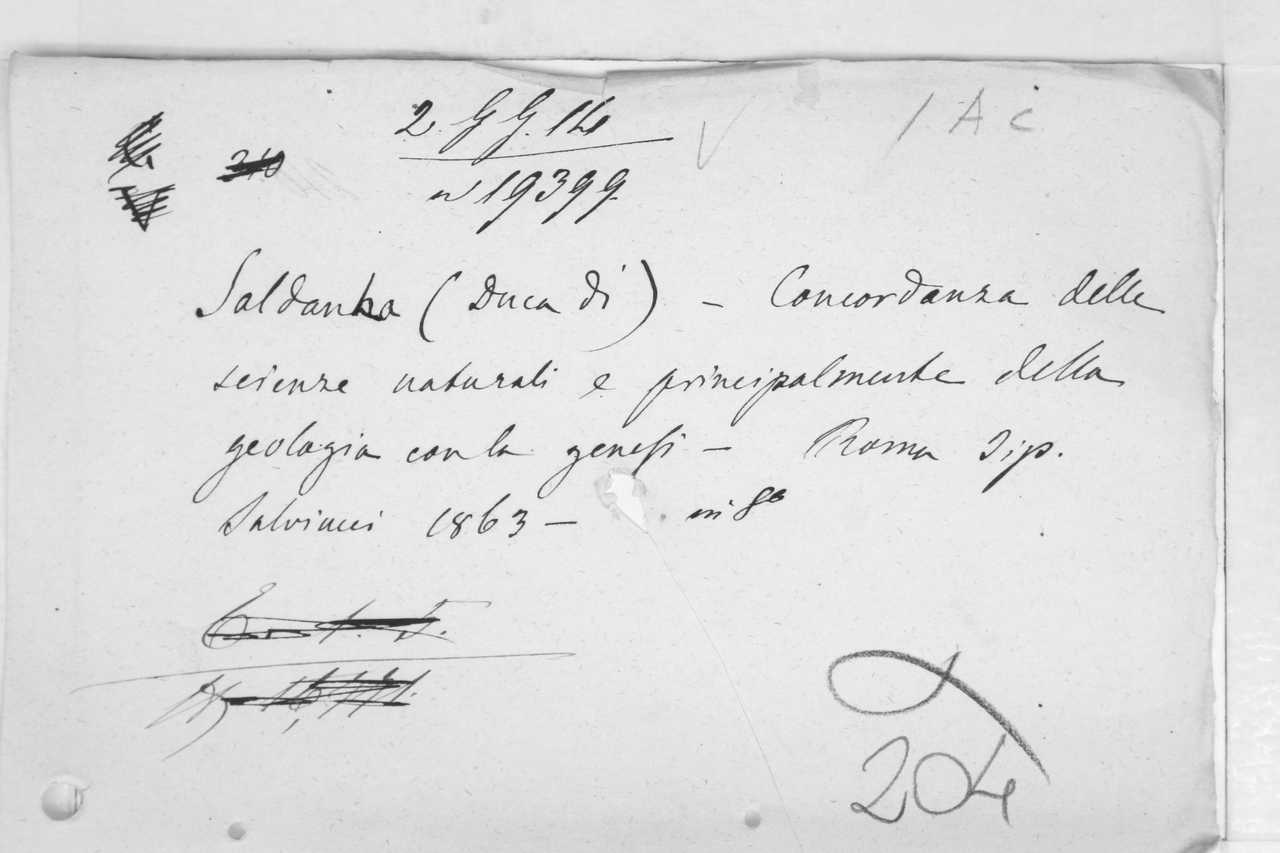 2. G G. 14
1 A C
n 19399.
Saldanha (Duca di) – Concordanza delle
scienze naturali e principalmente della
geologia con la genesi – Roma tip.
Salviucci 1863 – in 8°
204